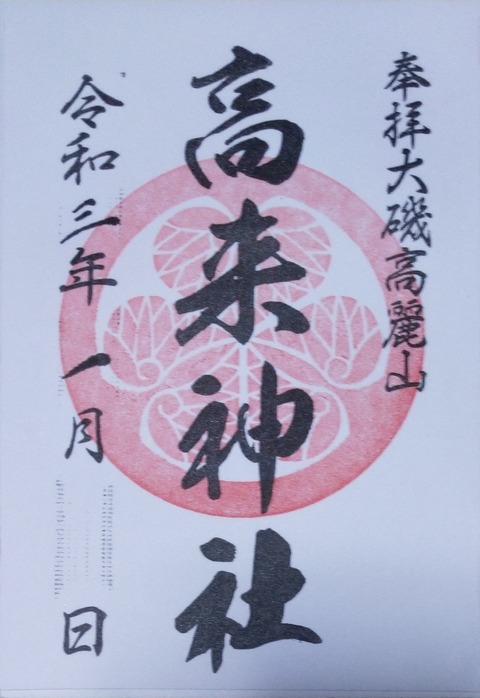 奉拝大磯高麗山
高来神社
令和三年一月 日